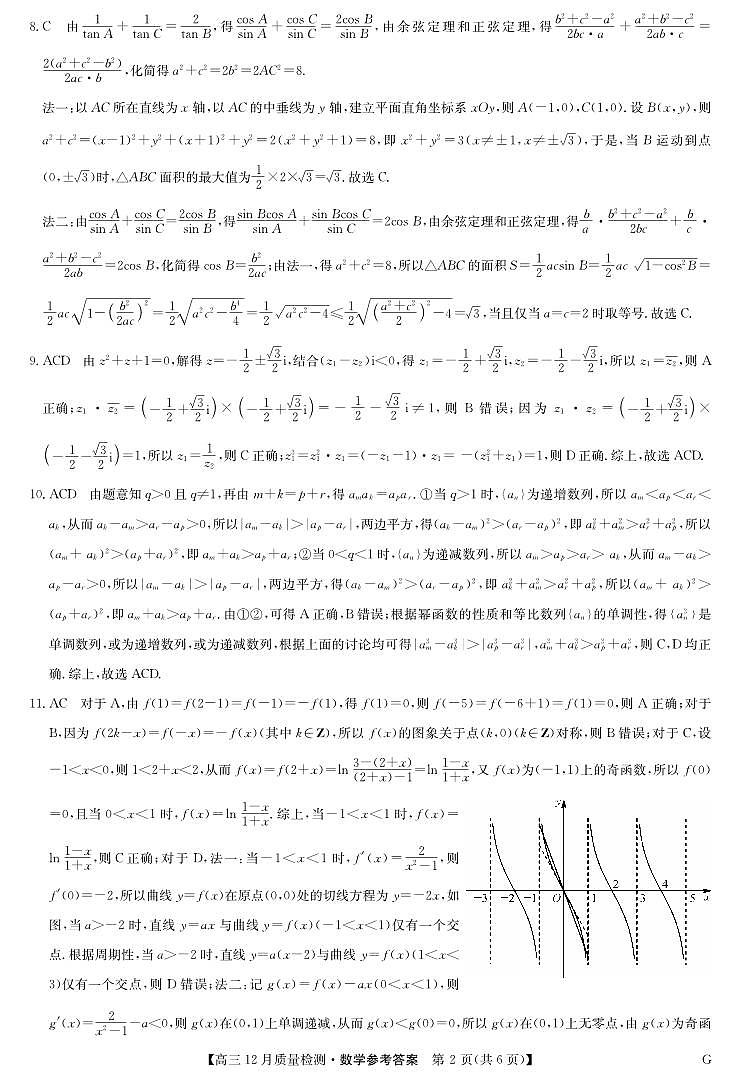 8. C 由 1/tan A + 1/tan C = 2/tan B, 得 cos A/sin A + cos C/sin C = 2cos B/sin B, 由余弦定理和正弦定理, 得 (b²+c²−a²)/(2bc·a) + (a²+b²−c²)/(2ab·c) =
2(a²+c²−b²)/(2ac·b), 化简得 a²+c²=2b²=2AC²=8.
法一:以 AC 所在直线为 x 轴,以 AC 的中垂线为 y 轴,建立平面直角坐标系 xOy,则 A(−1,0),C(1,0). 设 B(x,y),则
a²+c²=(x−1)²+y²+(x+1)²+y²=2(x²+y²+1)=8,即 x²+y²=3(x≠±1,x≠±√3),于是,当 B 运动到点
(0,±√3)时,△ABC 面积的最大值为 1/2×2×√3=√3. 故选 C.
法二:由 cos A/sin A + cos C/sin C = 2cos B/sin B, 得 sin Bcos A/sin A + sin Bcos C/sin C = 2cos B, 由余弦定理和正弦定理,得 b/a · (b²+c²−a²)/2bc + b/c ·
(a²+b²−c²)/2ab = 2cos B, 化简得 cos B = b²/2ac; 由法一,得 a²+c²=8,所以△ABC 的面积 S = 1/2 acsin B = 1/2 ac √(1−cos²B) =
1/2 ac√(1−(b²/2ac)²) = 1/2 √(a²c²−b⁴/4) = 1/2 √(a²c²−4) ≤ 1/2 √(((a²+c²)/2)²−4) = √3, 当且仅当 a=c=2 时取等号. 故选 C.
9. ACD 由 z²+z+1=0,解得 z=−1/2±√3/2 i,结合(z₁−z₂)i<0,得 z₁=−1/2+√3/2 i,z₂=−1/2−√3/2 i,所以 z₁=z̅₂,则 A
正确;z₁·z̅₂=(−1/2+√3/2 i)×(−1/2+√3/2 i)=−1/2−√3/2 i≠1,则 B 错误;因为 z₁·z₂=(−1/2+√3/2 i)×
(−1/2−√3/2 i)=1,所以 z₁=1/z₂,则 C 正确;z₁³=z₁²·z₁=(−z₁−1)·z₁=−(z₁²+z₁)=1,则 D 正确. 综上,故选 ACD.
10. ACD 由题意知 q>0 且 q≠1,再由 m+k=p+r,得 aₘaₖ=aₚaᵣ. ①当 q>1 时,{aₙ}为递增数列,所以 aₘ<aₚ<aᵣ<
aₖ,从而 aₖ−aₘ>aᵣ−aₚ>0,所以|aₘ−aₖ|>|aₚ−aᵣ|,两边平方,得(aₖ−aₘ)²>(aᵣ−aₚ)²,即 aₖ²+aₘ²>aᵣ²+aₚ²,所以
(aₘ+aₖ)²>(aₚ+aᵣ)²,即 aₘ+aₖ>aₚ+aᵣ;②当 0<q<1 时,{aₙ}为递减数列,所以 aₘ>aₚ>aᵣ>aₖ,从而 aₘ−aₖ>
aₚ−aᵣ>0,所以|aₘ−aₖ|>|aₚ−aᵣ|,两边平方,得(aₖ−aₘ)²>(aᵣ−aₚ)²,即 aₖ²+aₘ²>aᵣ²+aₚ²,所以(aₘ+aₖ)²>
(aₚ+aᵣ)²,即 aₘ+aₖ>aₚ+aᵣ. 由①②,可得 A 正确,B 错误;根据幂函数的性质和等比数列{aₙ}的单调性,得
单调数列,或为递增数列,或为递减数列,根据上面的讨论均可得 则 C,D 均正
确. 综上,故选 ACD.
11. AC 对于 A,由 f(1)=f(2−1)=f(−1)=−f(1),得 f(1)=0,则 f(−5)=f(−6+1)=f(1)=0,则 A 正确;对于
B,因为 f(2k−x)=f(−x)=−f(x)(其中 k∈Z),所以 f(x)的图象关于点(k,0)(k∈Z)对称,则 B 错误;对于 C,设
−1<x<0,则 1<2+x<2,从而 f(x)=f(2+x)=ln (3−(2+x))/((2+x)−1)=ln (1−x)/(1+x),又 f(x)为(−1,1)上的奇函数,所以 f(0)
=0,且当 0<x<1 时,f(x)=ln (1−x)/(1+x). 综上,当−1<x<1 时,f(x)=
ln (1−x)/(1+x),则 C 正确;对于 D,法一:当−1<x<1 时,f′(x)=2/(x²−1),则
f′(0)=−2,所以曲线 y=f(x)在原点(0,0)处的切线方程为 y=−2x,如
图,当 a>−2 时,直线 y=ax 与曲线 y=f(x)(−1<x<1)仅有一个交
点. 根据周期性,当 a>−2 时,直线 y=a(x−2)与曲线 y=f(x)(1<x<
3)仅有一个交点,则 D 错误;法二:记 g(x)=f(x)−ax(0<x<1),则
g′(x)=2/(x²−1)−a<0,则 g(x)在(0,1)上单调递减,从而 g(x)<g(0)=0,所以 g(x)在(0,1)上无零点,由 g(x)为奇函
y
−3 −2 −1 O 1 2 3 4 5 x
【高三 12 月质量检测·数学参考答案 第 2 页(共 6 页)】 G